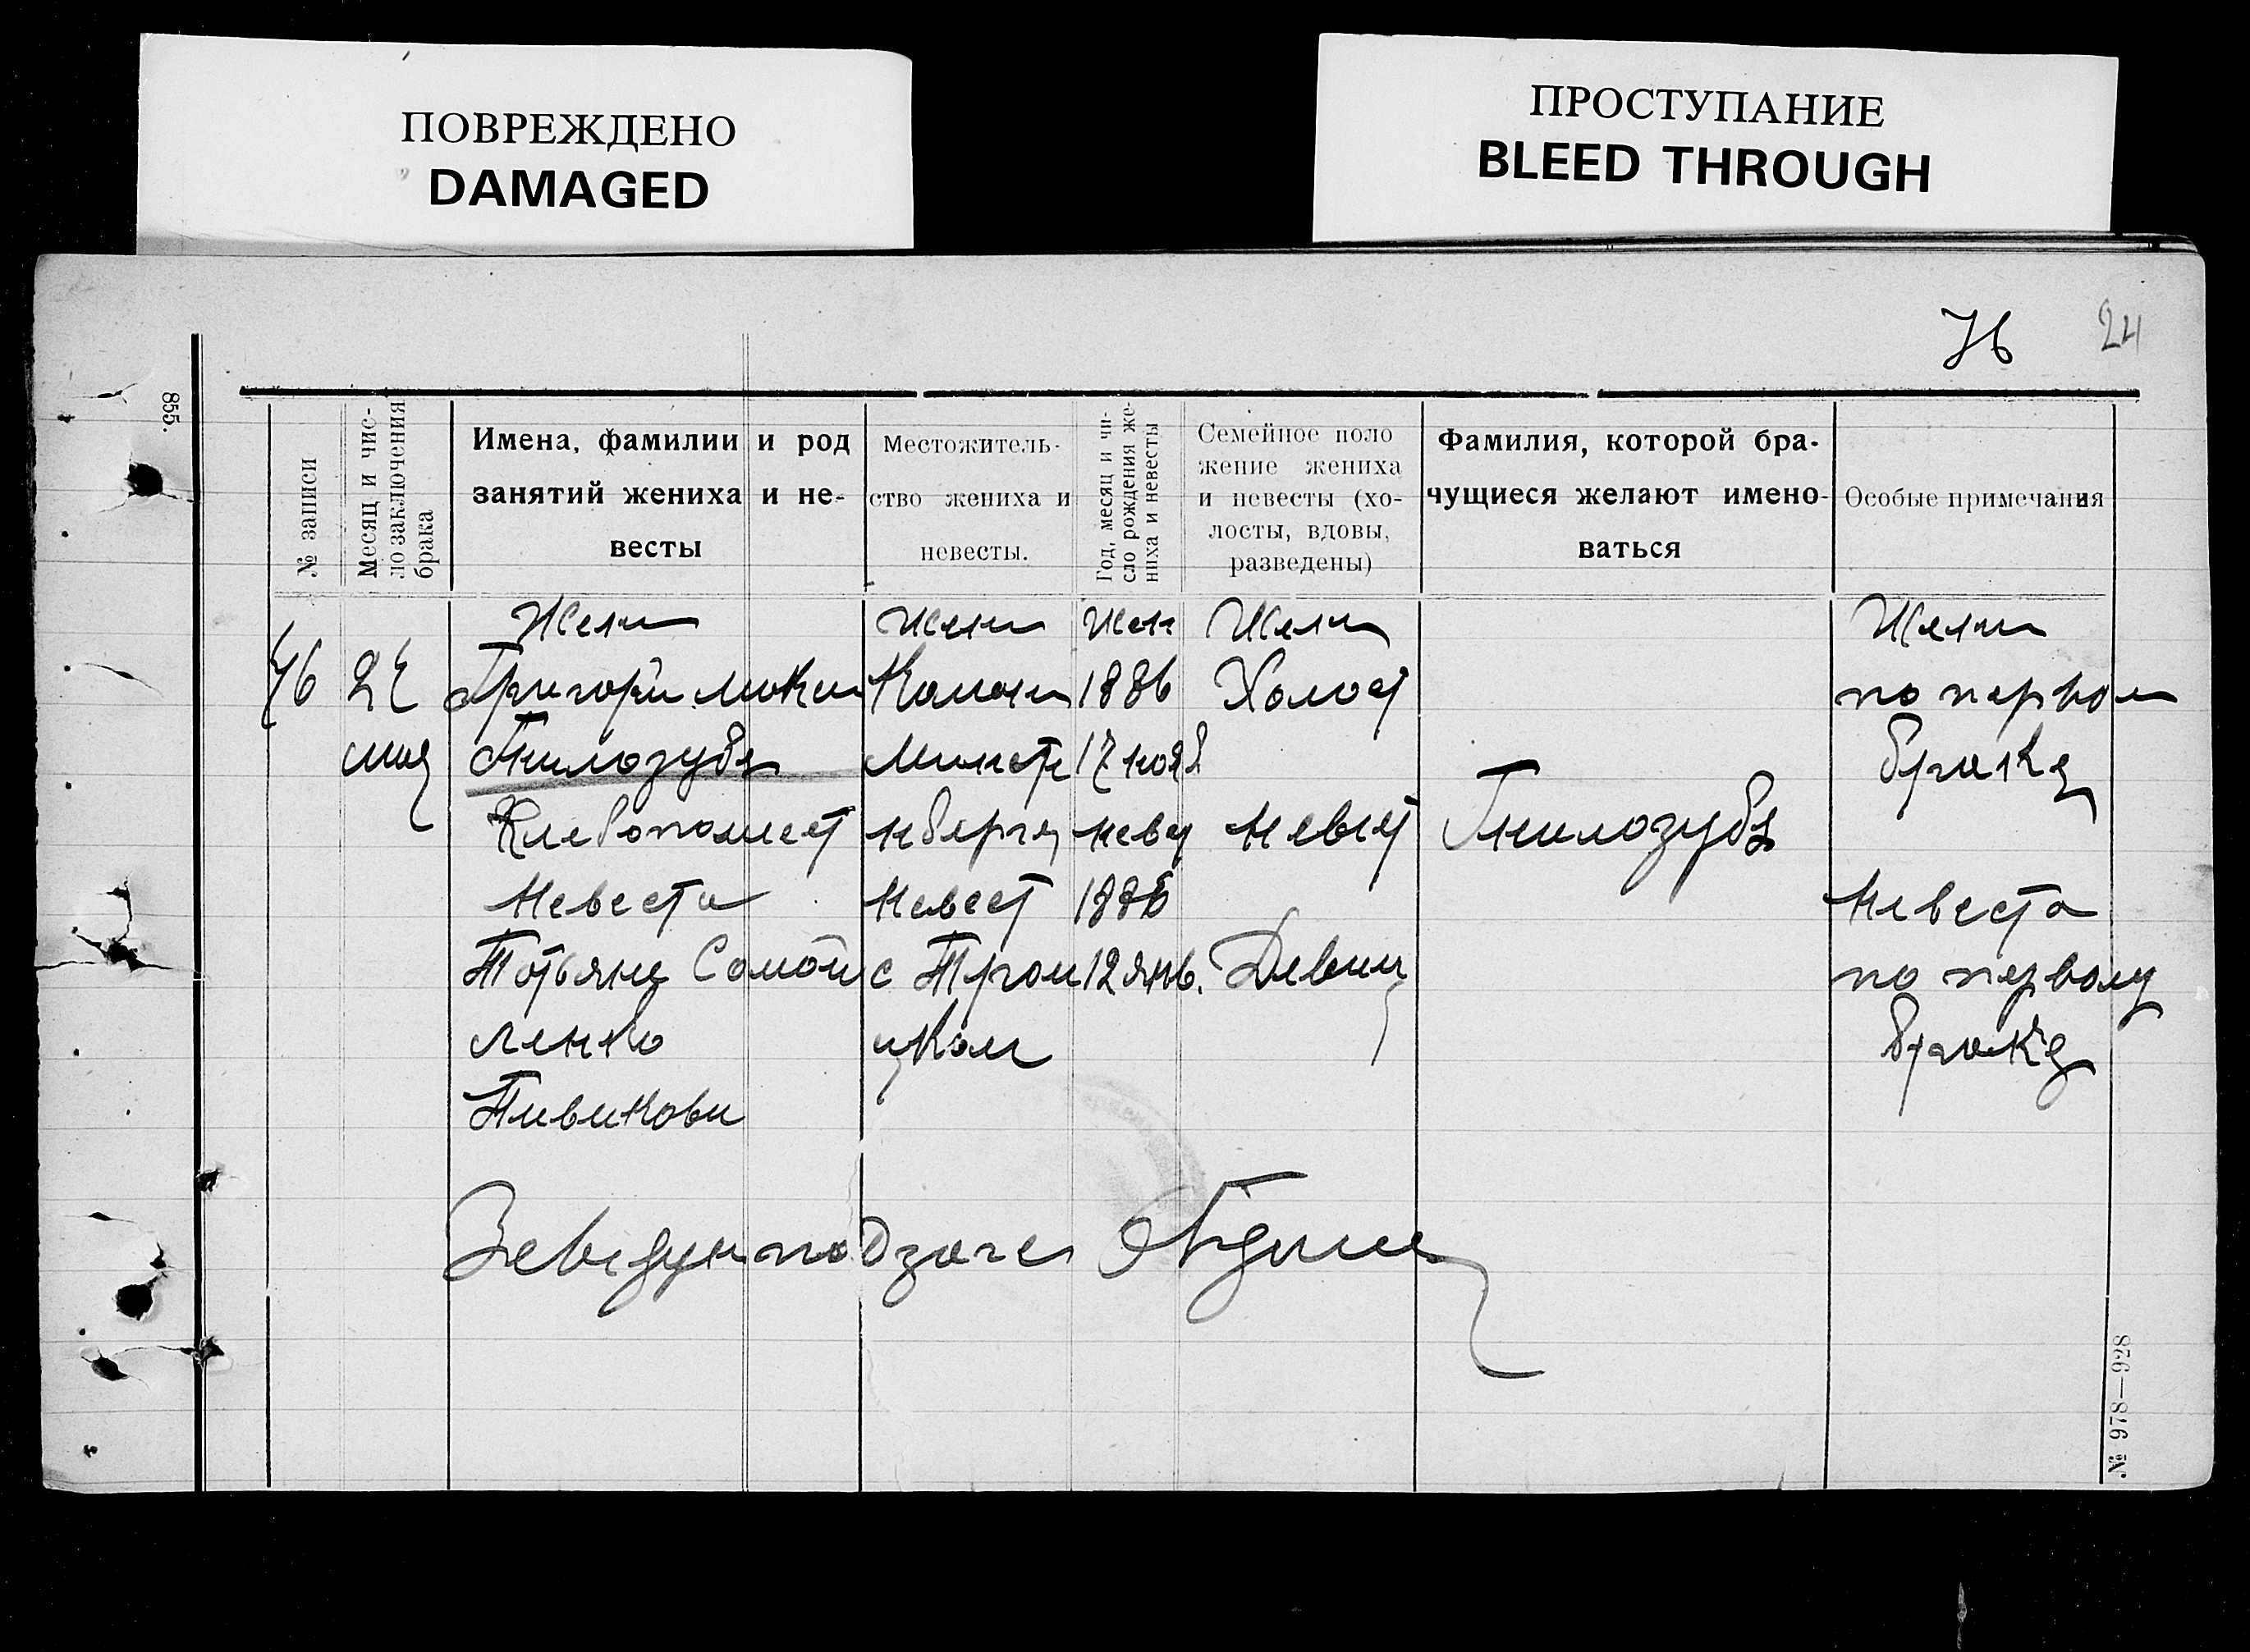 ПОВРЕЖДЕНО
DAMAGED
ПРОСТУПАНИЕ
BLEED THROUGH
76 24
855.
№ записи
Месяц и чис-
ло заключения
брака
Имена, фамилии и род
занятий жениха и не-
весты
Местожитель-
ство жениха и
невесты.
Год, месяц и чи-
сло рождения же-
ниха и невесты
Семейное поло
жение жениха
и невесты (хо-
лосты, вдовы,
разведены)
Фамилия, которой бра-
чущиеся желают имено-
ваться
Особые примечания
76
мая
Жени
Григорий
Гнилозубъ
Хлебопашест
Невеста
Татьяна Самой
ленко
Жени
Колони
нберга
Невест
с Трои
цком
Жен
1886
17 нояб
неве
1886
12 янв.
Жени
Холост
Невест
Девиц
Гнилозубъ
Жени
по первом
браке
Невеста
по первому
браке
№ 978—928